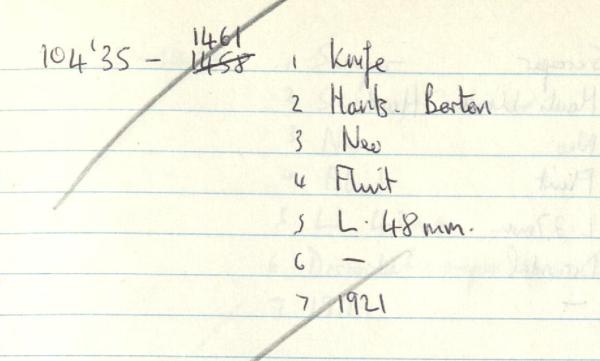 1461
104'35 - 1458 1 Knife
2 Hants. Barton
3 Neo
4 Flint
5 L. 48mm.
6 —
7 1921